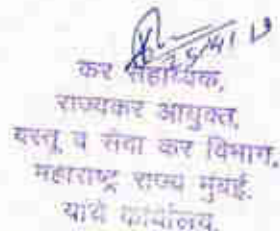 25/4/13
कर सहाय्यक,
राज्यकर आयुक्त,
वस्तू व सेवा कर विभाग,
महाराष्ट्र राज्य मुंबई.
यांचे कार्यालय.